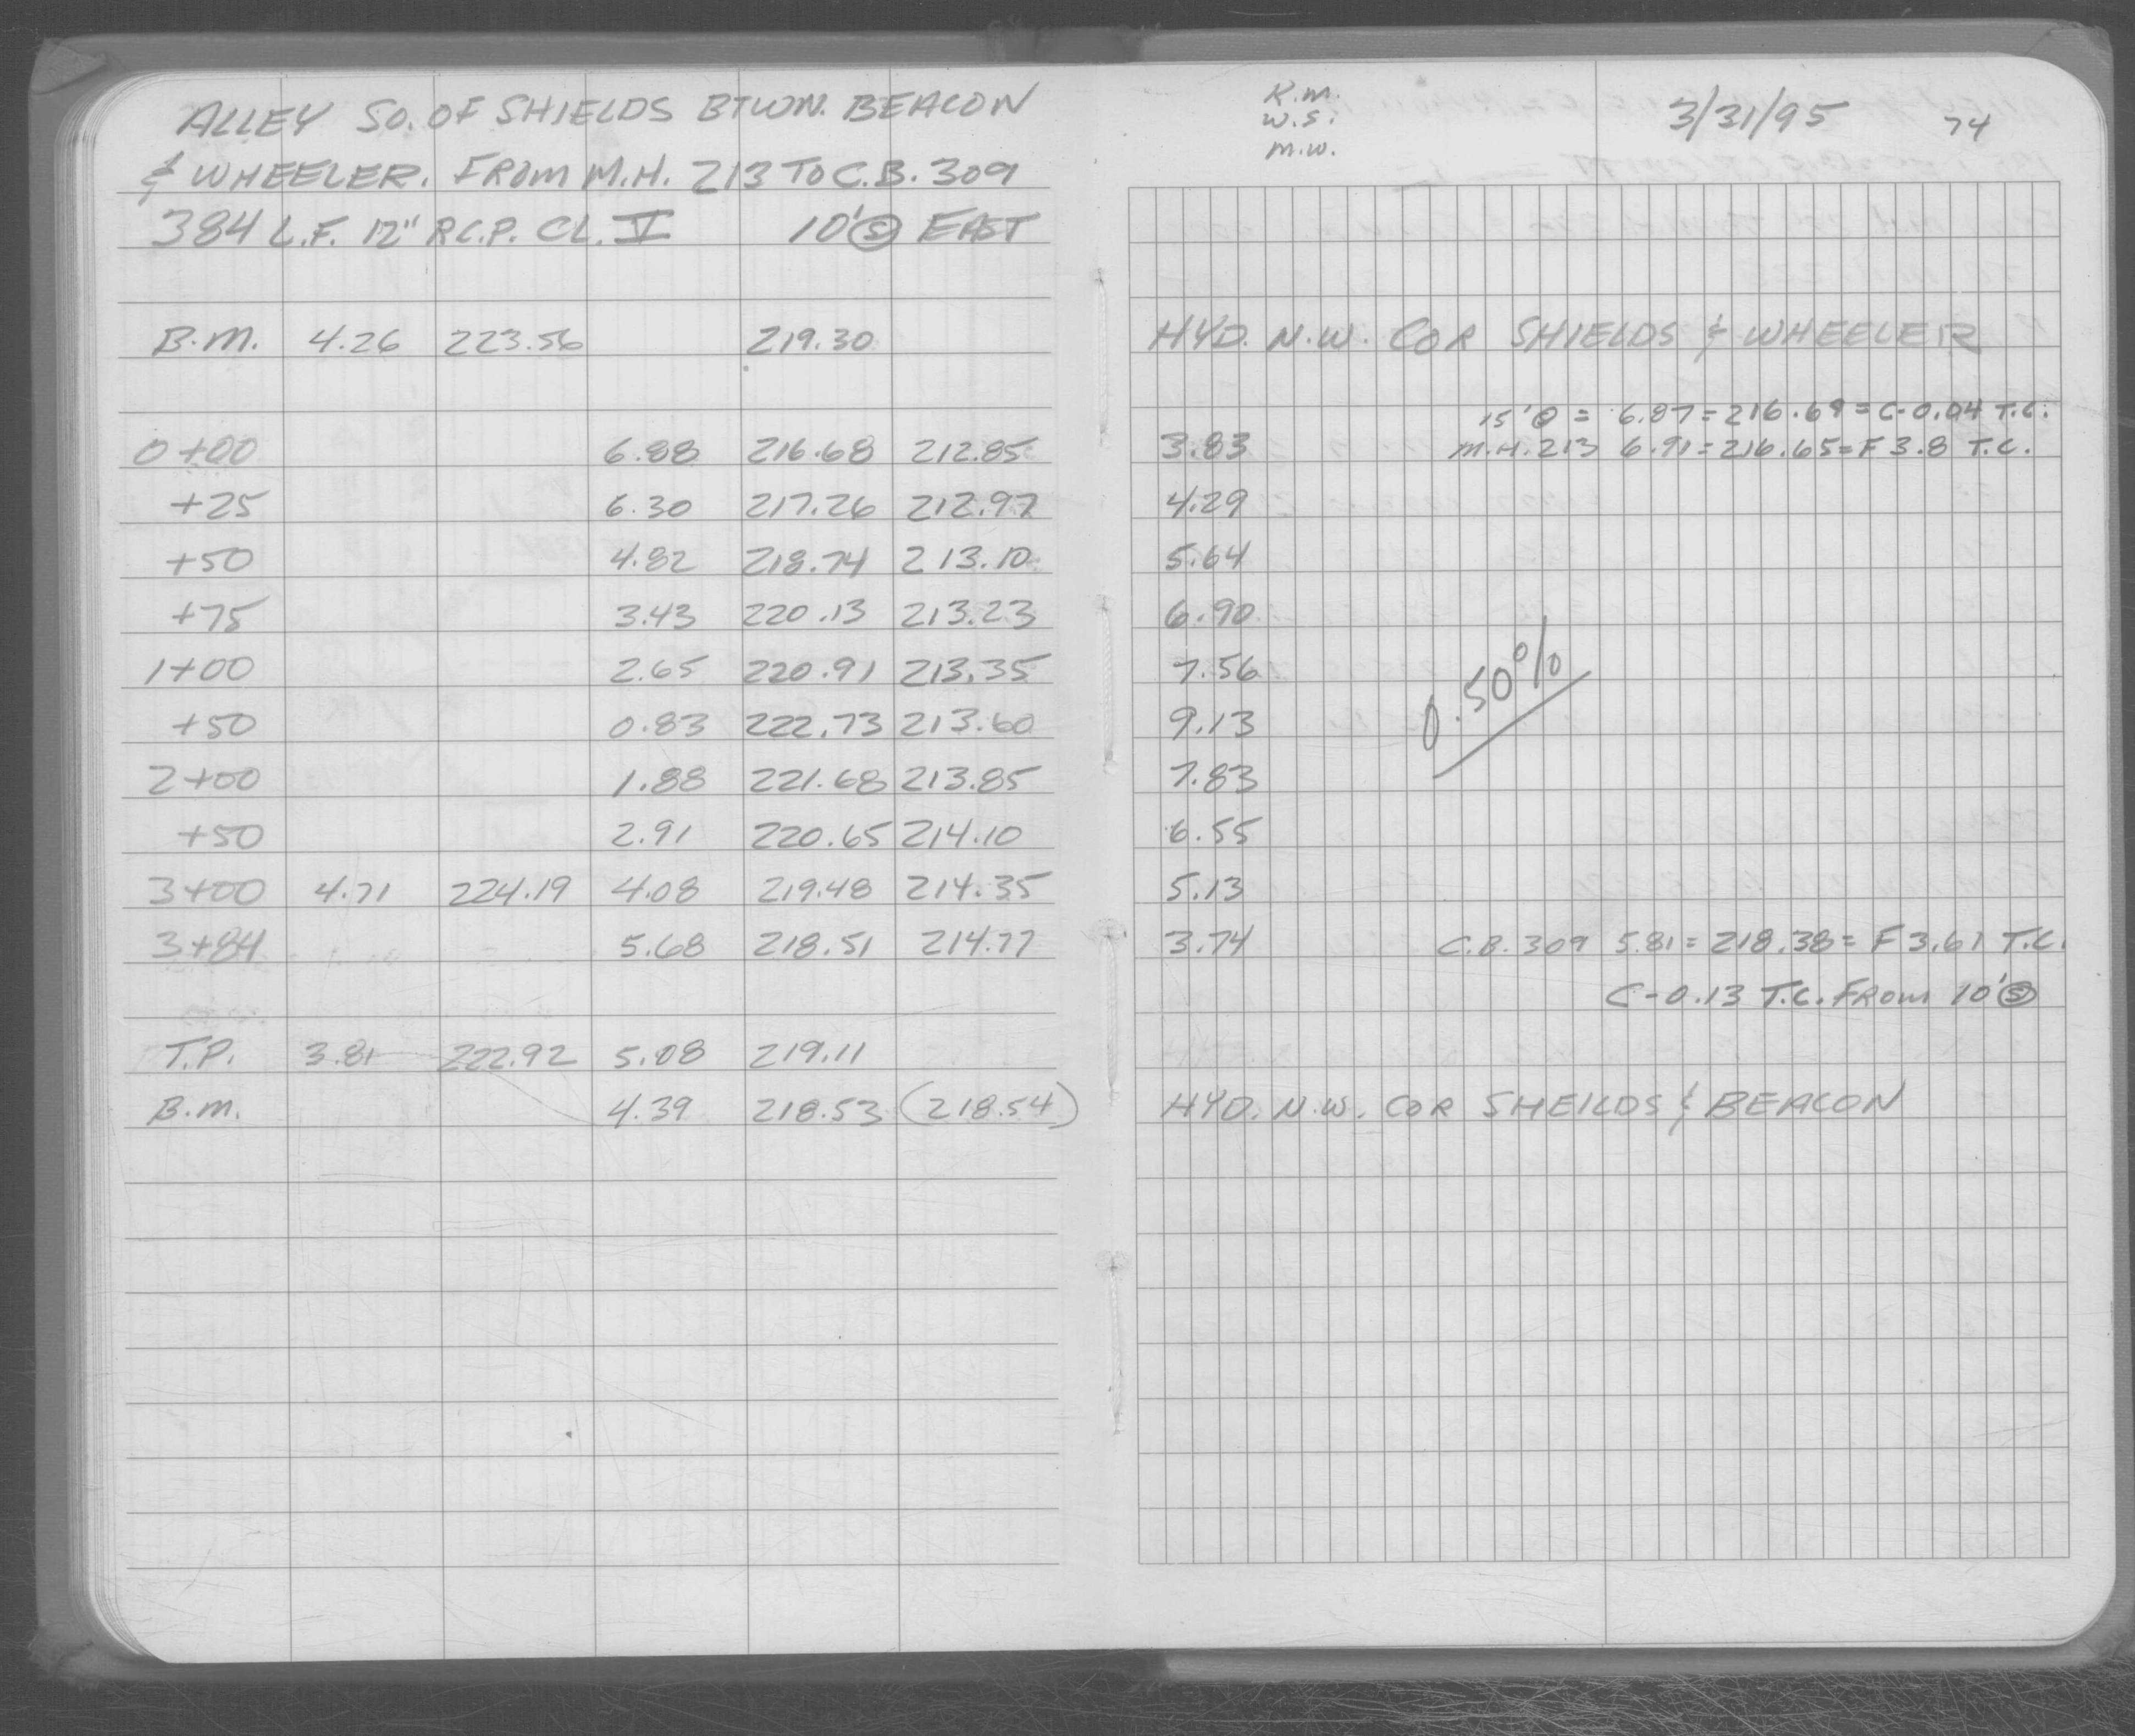 ALLEY SO. OF SHIELDS BTWN. BEACON
& WHEELER. FROM M.H. 213 TO C.B. 309
384 L.F. 12" R.C.P. CL. V 10' Ⓢ EAST
B.M. 4.26 223.56 219.30
0+00 6.88 216.68 212.85
+25 6.30 217.26 212.97
+50 4.82 218.74 213.10
+75 3.43 220.13 213.23
1+00 2.65 220.91 213.35
+50 0.83 222.73 213.60
2+00 1.88 221.68 213.85
+50 2.91 220.65 214.10
3+00 4.71 224.19 4.08 219.48 214.35
3+84 5.68 218.51 214.77
T.P. 3.81 222.92 5.08 219.11
B.M. 4.39 218.53 (218.54)
K.M.
W.S.
M.W.
3/31/95 74
HYD. N.W. COR SHIELDS & WHEELER
15' = 6.87 = 216.69 = C-0.04 T.C.
3.83 M.H. 213 6.91 = 216.65 = F 3.8 T.C.
4.29
5.64
6.90
7.56
0.50%
9.13
7.83
6.55
5.13
3.74 C.B. 309 5.81 = 218.38 = F 3.61 T.C.
C-0.13 T.C. FROM 10' Ⓢ
HYD. N.W. COR SHEILDS & BEACON